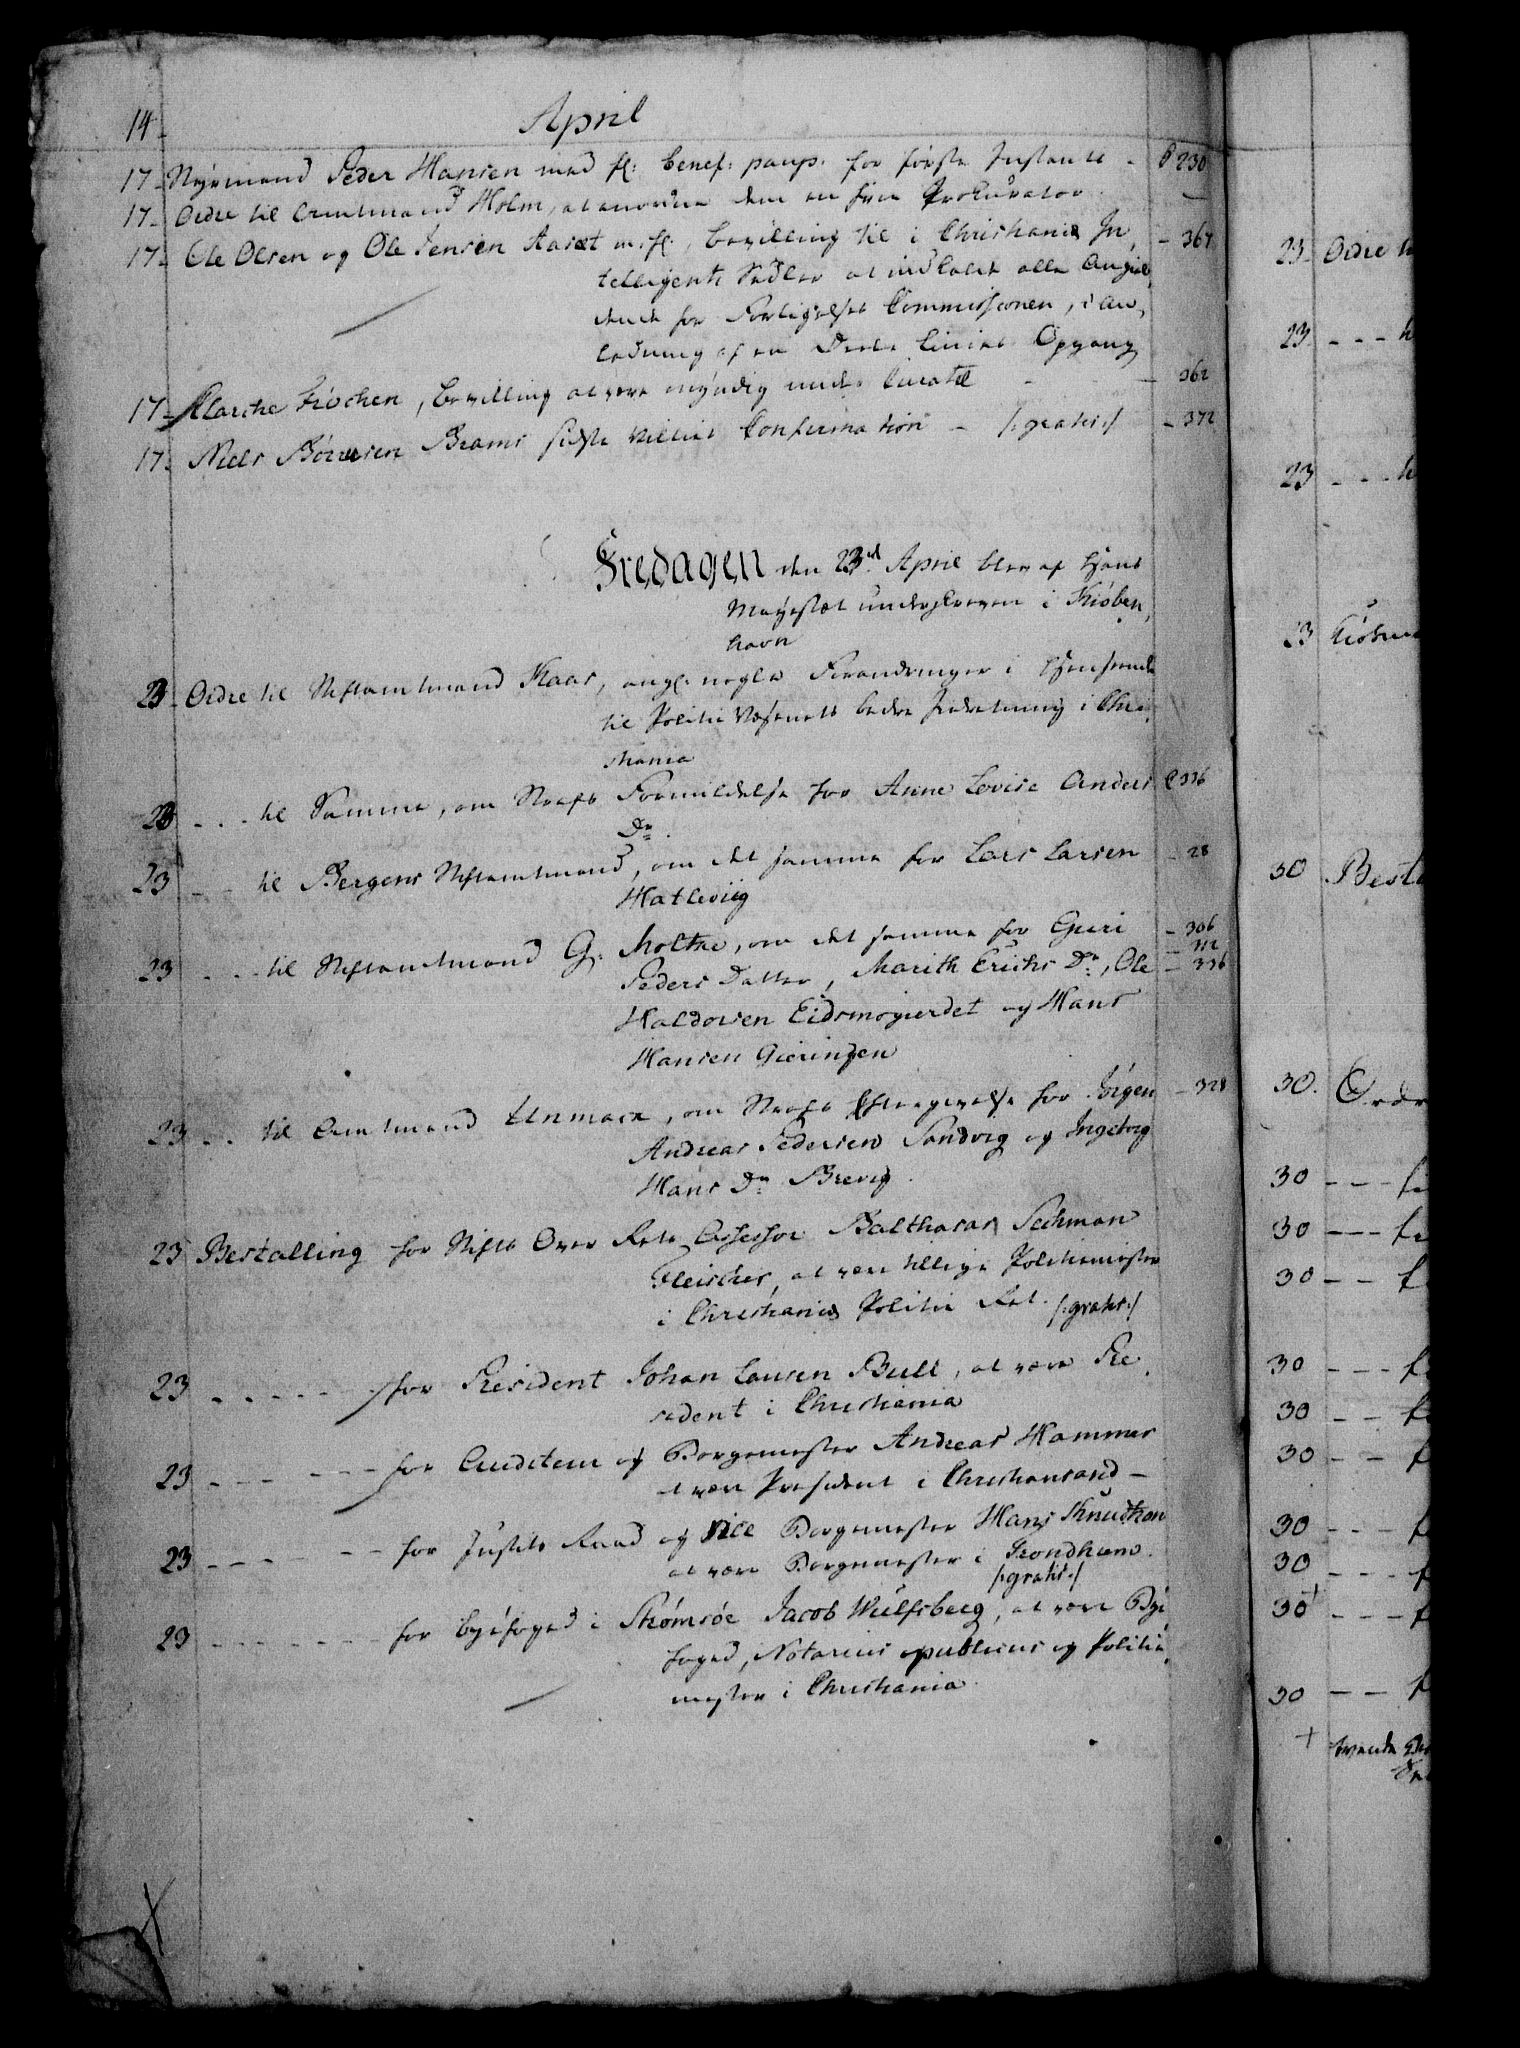 14.
April
17. Styrmand Peder Hansen med fl: benef: paup. for første Instants - P 230
17. Ordre til Amtmand Holm, at anordne dem en frie Prokurator -
17. Ole Olsen og Ole Jensen Aaset m. fl., bevilling til i Christiania In, - 367
telligents Sædler at indkalde alle Angiel,
dende for Forligelses Commissionen, i An,
ledning af en Deele Linies Opgang
17. Marthe Fischen, bevilling at være myndig under Curatel - - 362
17. Niels Børresen Brams sidste Villies Confirmation - /:gratis:/ - 372
Fredagen den 23d April blev af Hans
Mayestæt underskreven i Kiøben,
havn
23. Ordre til Stiftamtmand Kaas, angl. nogle Forandringer i Henseende
til Politie Væsenets bedre Indretning i Chri,
stiania
23 - - - til Samme, om Strafs Formildelse for Anne Lovise Anders P 336
Dr.
23 - - til Bergens Stiftamtmand, om det samme for Lars Larsen - 28
Hatleviig
23 - - - til Stiftamtmand G: Moltke, om det samme for Guri - 306
Peders Datter, Marith Erichs Dr:, Ole - 336
Haldorsen Eidsmogierdet og Hans
Hansen Gieringen
23 - - til Amtmand Unmack, om Strafs Eftergivelse for Jørgen - 328
Andreas Pedersen Sandvig og Ingeborg
Hans Dr. Brevig.
23 Bestalling for Stifts Over Rets Assessor Balthasar Sechman
Fleischer, at være tillige Politiemester
i Christiania Politie Ret. /:gratis:/
23 - - - - - - for President Johan Lausen Bull, at være Pre,
sident i Christiania
23 - - - - - - for Auditeur og Borgemester Andreas Hammer
at være President i Christiansand -
23 - - - - - - for Justits Raad og vice Borgemester Hans Knudtzon
at være Borgemester i Trondhiem.
/:gratis:/
23 - - - - - - - for Byefoged i Strømsøe Jacob Wulfsberg, at være Bye
foged, Notarius publicus og Politie,
mester i Christiania.
23 Ordre
23 - - -
23 - - -
23
30 Besta
30. Ordr
30 - - -
30 - - -
30 - - -
30 - - -
30 - - -
30 - - -
30 - - -
30 - - -
30 - - -
30 - - -
+